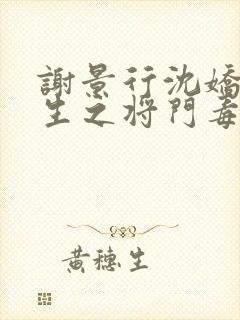 謝景行沈嬌
生之将門毒
黃穗生